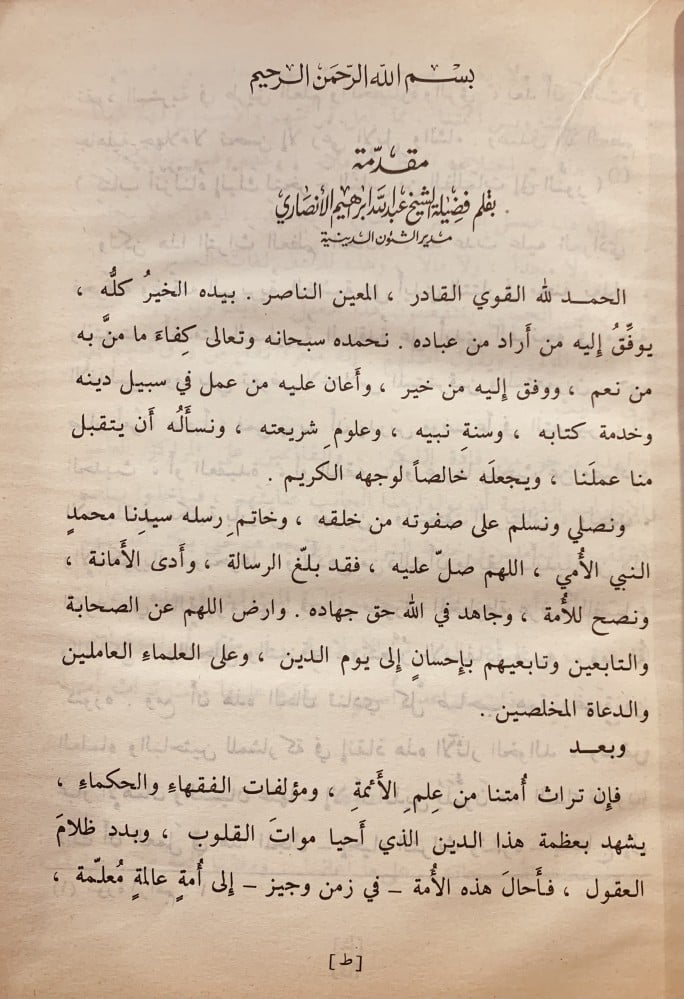 بسم الله الرحمن الرحيم
مقدّمة
بقلم فضيلة الشيخ عبد الله ابراهيم الأنصاري
مدير الشئون الدينية
الحمد لله القوي القادر ، المعين الناصر . بيده الخيرُ كلُّه ،
يوفِّقُ إليه من أراد من عباده . نحمده سبحانه وتعالى كِفاءَ ما منَّ به
من نعم ، ووفق إليه من خير ، وأعان عليه من عمل في سبيل دينه
وخدمة كتابه ، وسنةِ نبيه ، وعلومِ شريعته ، ونسألُه أن يتقبل
منا عملَنا ، ويجعلَه خالصاً لوجهه الكريم .
ونصلي ونسلم على صفوته من خلقه ، وخاتمِ رسله سيدِنا محمدٍ
النبي الأُمي ، اللهم صلّ عليه ، فقد بلّغ الرسالة ، وأدى الأمانة ،
ونصح للأُمة ، وجاهد في الله حق جهاده . وارض اللهم عن الصحابة
والتابعين وتابعيهم بإحسانٍ إلى يوم الدين ، وعلى العلماءِ العاملين
والدعاة المخلصين .
وبعد
فإن تراث أُمتنا من عِلمِ الأَئمةِ ، ومؤلفات الفقهاءِ والحكماءِ ،
يشهد بعظمة هذا الدين الذي أحيا مواتَ القلوب ، وبدد ظلامَ
العقول ، فأحالَ هذه الأُمة – في زمن وجيز – إلى أُمةٍ عالمةٍ مُعلّمة ،
[ط]